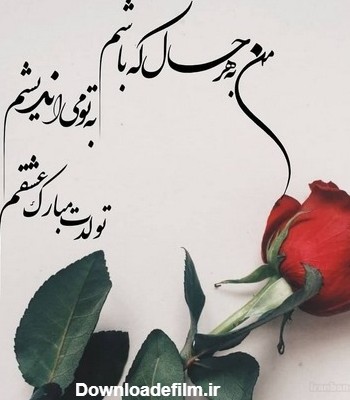 من به هر حال که باشم
به تو می اندیشم
تولدت مبارک عشقم
Downloadefilm.ir